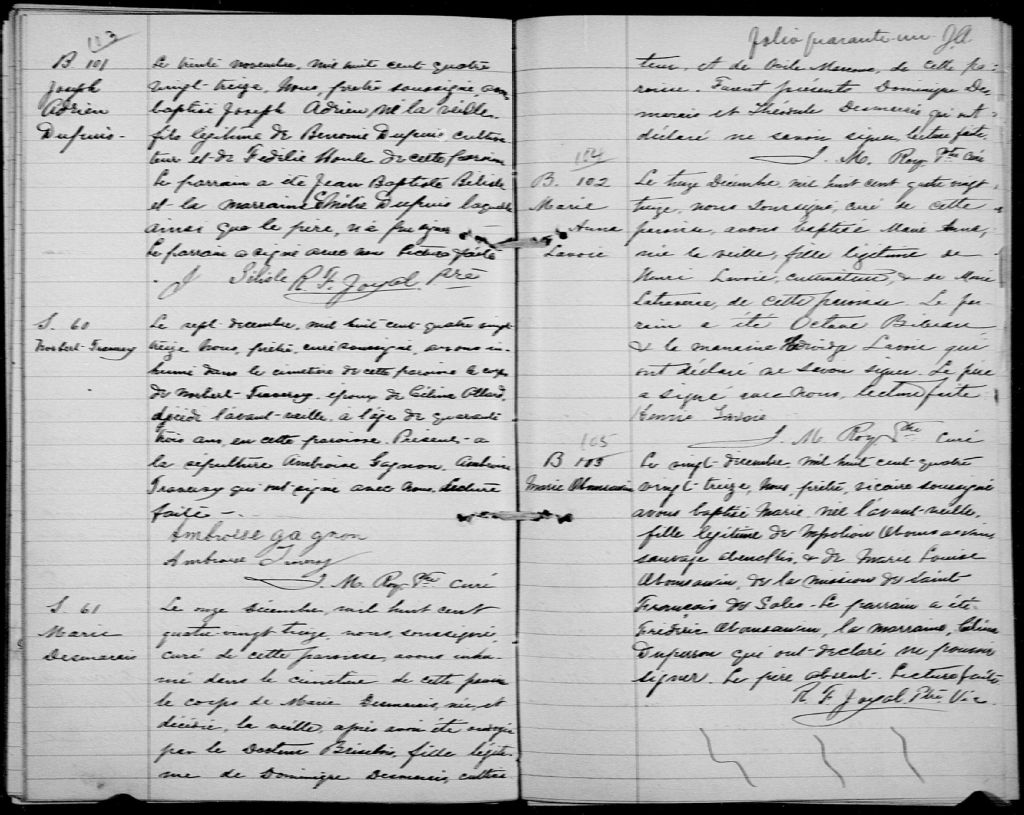 113
B. 101
Joseph
Adrien
Dupuis -
Le vingt novembre, mil huit cent quatre
vingt-treize, Nous, prêtre soussigné avons
baptisé Joseph Adrien, né la veille,
fils légitime de Dupuis cultiva-
teur et de Fédélie Houle de cette paroisse
Le parrain a été Jean Baptiste Bélisle
et la marraine Dupuis laquelle
ainsi que le père, n'a pu signer
Le parrain a signé avec nous Lecture faite
J Bélisle R. F. Joyal Ptre
S. 60
Norbert
Le sept décembre, mil huit cent quatre vingt
treize Nous, prêtre, curé soussigné, avons in-
humé dans le cimetière de cette paroisse le corps
de Norbert époux de Céline Allard,
décédé l'avant-veille, à l'âge de quarante
trois ans, en cette paroisse. Présents à
la sépulture Ambroise Gagnon, Ambroise
qui ont signé avec nous. Lecture
faite -.
Ambroise gagnon
Ambroise
J. M. Roy Ptre curé
S. 61
Marie
Desmarais
Le onze décembre, mil huit cent
quatre-vingt treize, nous, soussigné,
curé de cette paroisse, avons inhu-
mé dans le cimetière de cette paroisse
le corps de Marie Desmarais, née, et
décédée, la veille, après avoir été ondoyée
par le Docteur fille légiti-
me de Dominique Desmarais, cultiva
folio quarante-un JA
teur, et de de cette pa-
roisse. Furent présents Dominique Des
marais et Théotule Desmarais qui ont
déclaré ne savoir signer lecture faite.
J. M. Roy Ptre Curé
104
B. 102
Marie
Anna
Lavoie
Le treize Décembre, mil huit cent quatre vingt
treize, nous soussigné, curé de cette
paroisse, avons baptisé Marie Anna,
née la veille, fille légitime de
Henri Lavoie, cultivateur, & de Marie
de cette paroisse. Le par
rain a été Octave
& la marraine Lavoie qui
ont déclaré ne savoir signer. Le père
a signé avec nous, lecture faite
Henri Lavoie
J. M. Roy Ptre Curé
105
B 103
Marie Obomsawin
Le vingt décembre, mil huit cent quatre
vingt-treize, Nous, prêtre, vicaire soussigné
avons baptisé Marie, née l'avant-veille,
fille légitime de Napoléon Obomsawin,
sauvage abenakis, & de Marie Louise
Obomsawin, de la mission de Saint
François de Sales - Le parrain a été
Frédéric Obomsawin, la marraine, Céline
Duperron qui ont déclaré ne pouvoir
signer. Le père absent. Lecture faite
R. F. Joyal, Ptre Vic.